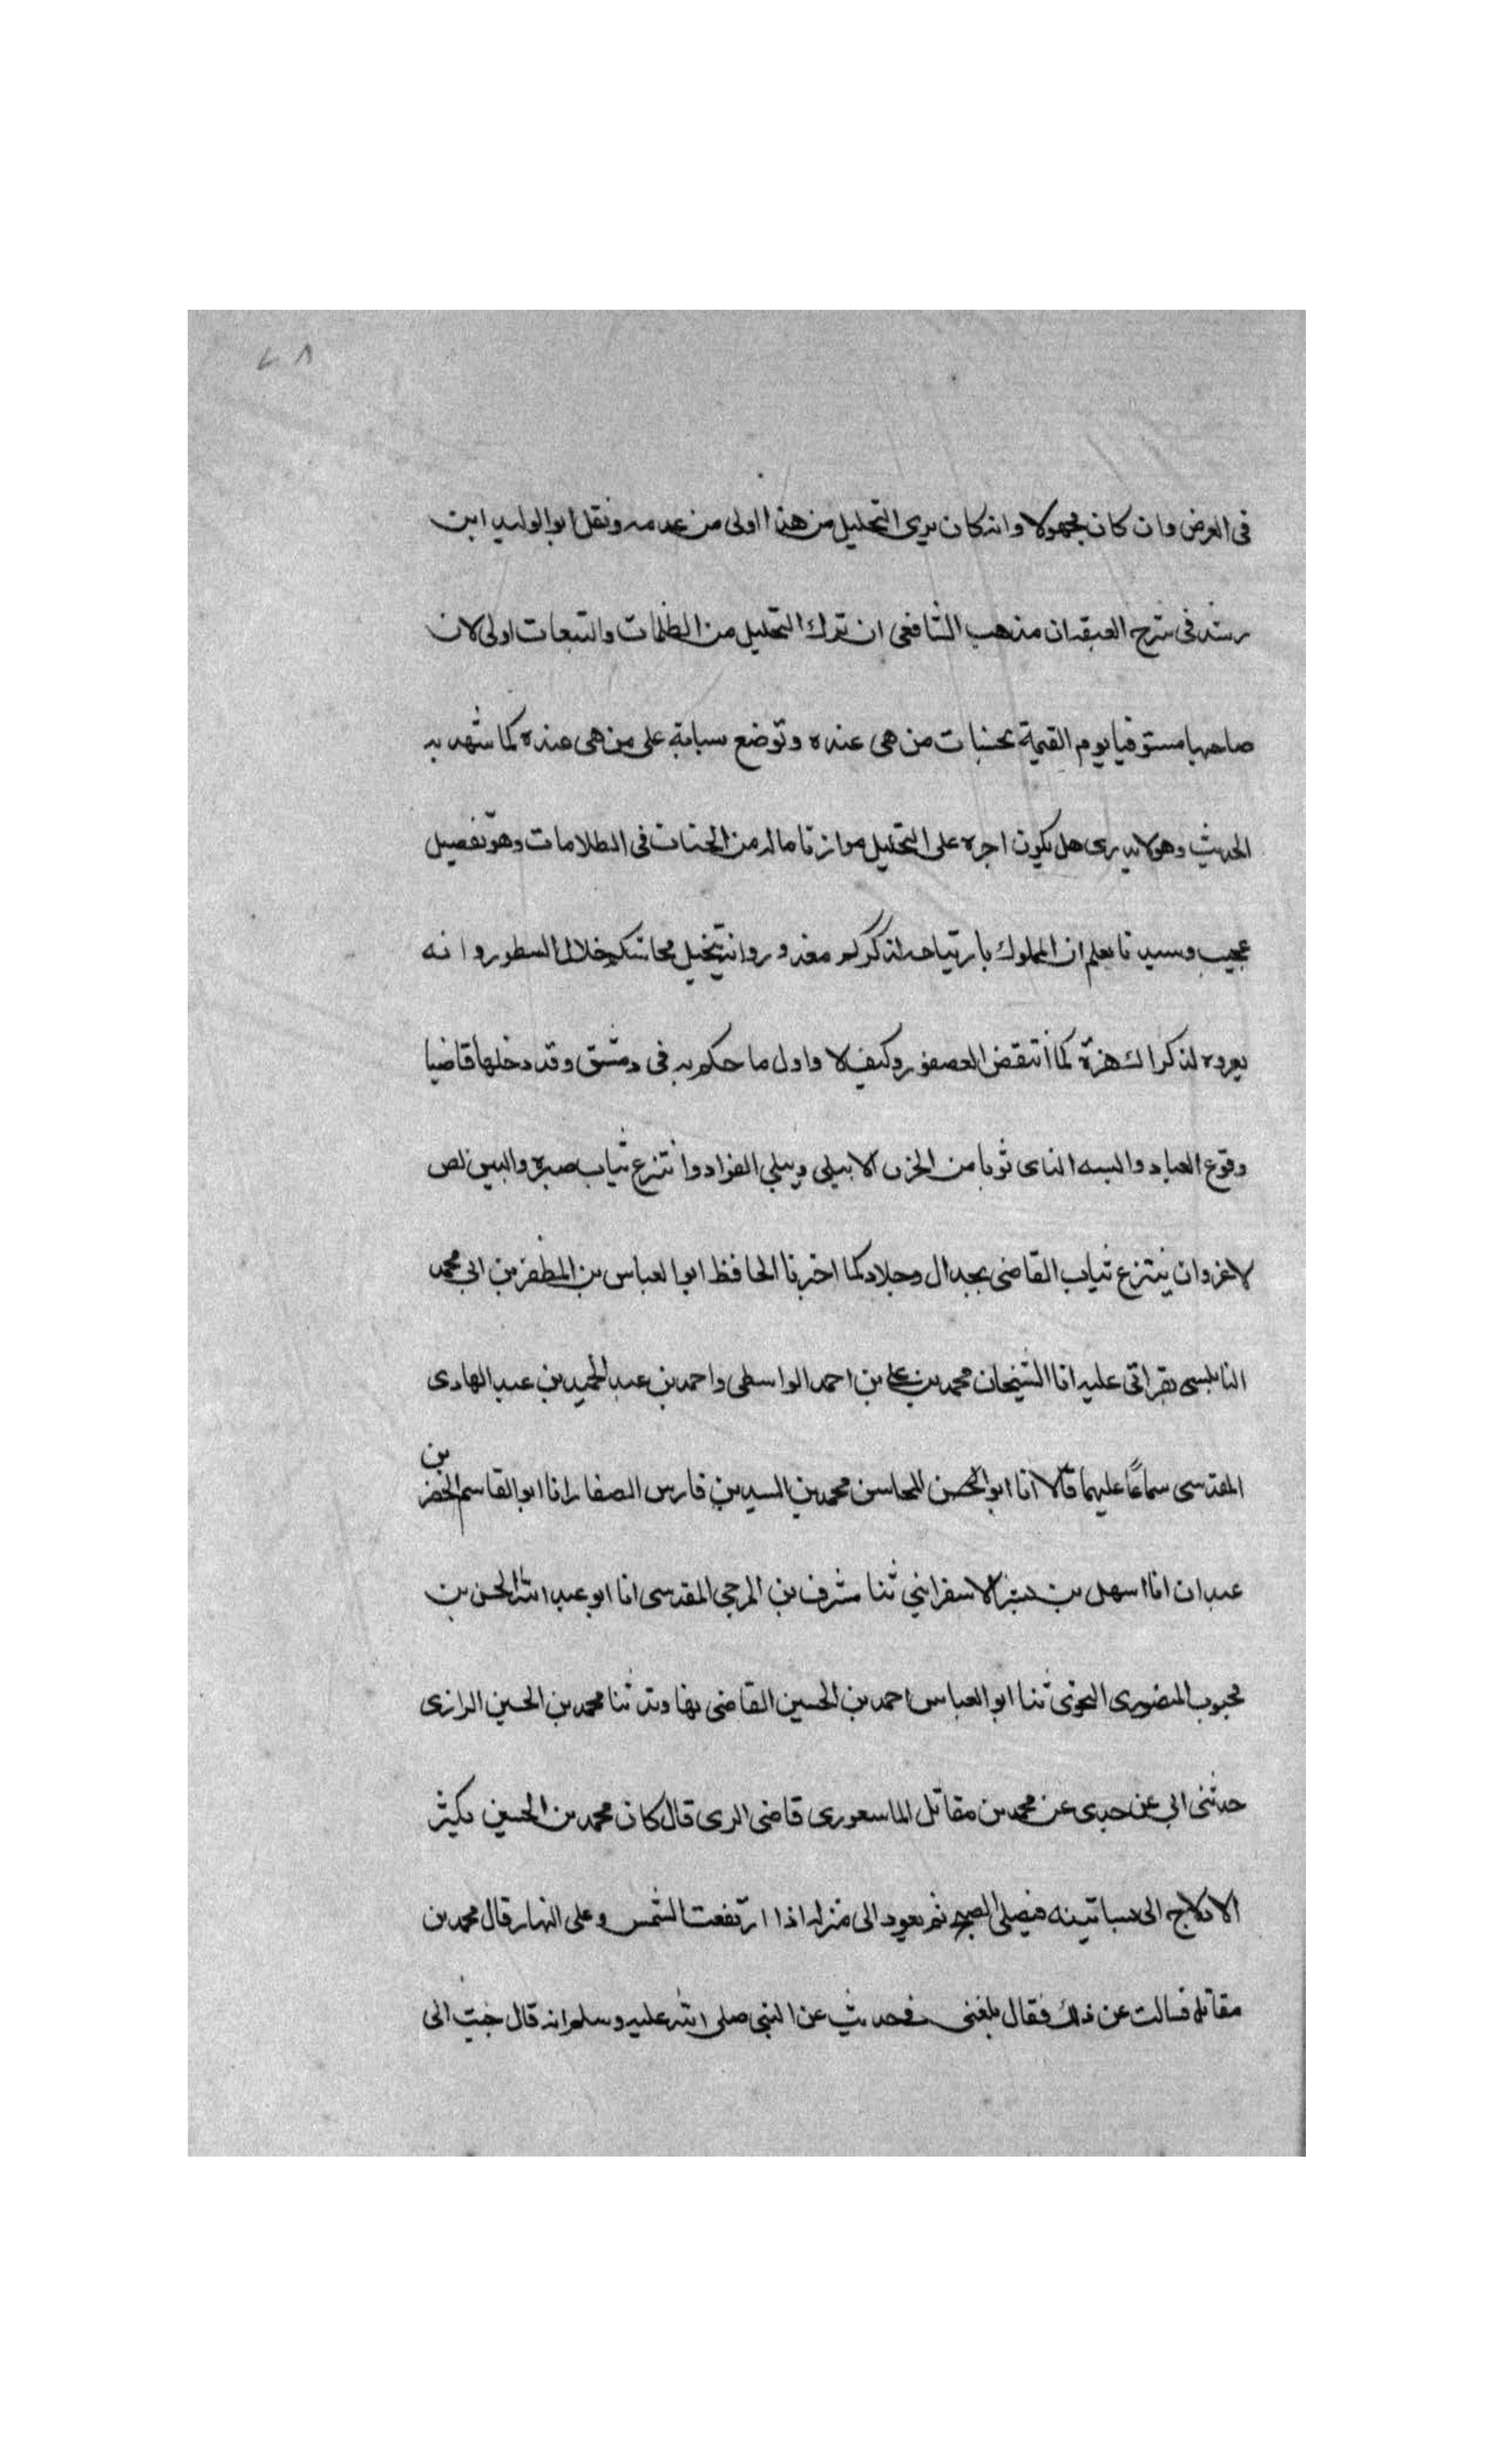 ٢٨
فى العرض وان كان مجهولا وانه كان يرى التحليل من هذا اولى من عدمه ونقل ابو الوليد ابن
رشد فى شرح العتبية ان مذهب الشافعى ان ترك التحليل من الظلمات والتبعات اولى لان
صاحبها مستوفيا يوم القيمة بحسنات من هى عنده وتوضع سياته على من هى عنده كما شهد به
الحديث وهو لا يدرى هل يكون اجره على التحليل موازنا ماله من الحسنات فى الظلامات وهو تفصيل
عجيب وسيدنا يعلم ان المملوك بارتياحه لذكركم معذور وانه يتخيل محاسنكم خلال السطور وانه
يعروه لذكراك هزة كما انتقض العصفور وكيف لا واول ما حكم به فى دمشق وقد دخلها قاضيا
وقوع العباد والبسه الناى ثوبا من الحزن لا يبلى ويبلي الفواد وانتزع ثياب صبره والبين لص
لاغرو ان ينتزع ثياب القاضى بجدال وجلاد كما اخبرنا الحافظ ابو العباس بن المظفر بن ابى محمد
النابلسى بقراتى عليه انا الشيخان محمد بن على بن احمد الواسطى واحمد بن عبد الحميد بن عبد الهادى
المقدسى سماعًا عليهما قالا انا ابو الحسن المحاسن محمد بن السيد بن فارس الصفار انا ابو القاسم الخضر بن
عبدان انا سهل بن بشر الاسفراينى ثنا مشرف بن المرجى المقدسى انا ابو عبد الله الحسن بن
محبوب المنصورى النحوى ثنا ابو العباس احمد بن الحسين القاضى بنهاوند ثنا محمد بن الحسين الرازى
حدثنى ابى عن جدى عن محمد بن مقاتل الماسعورى قاضى الرى قال كان محمد بن الحسين يكثر
الادلاج الى بساتينه فيصلى الصبح ثم يعود الى منزله اذا ارتفعت الشمس وعلى النهار قال محمد بن
مقاتل فسالت عن ذلك فقال بلغنى فى حديث عن النبى صلى الله عليه وسلم انه قال حبب الى